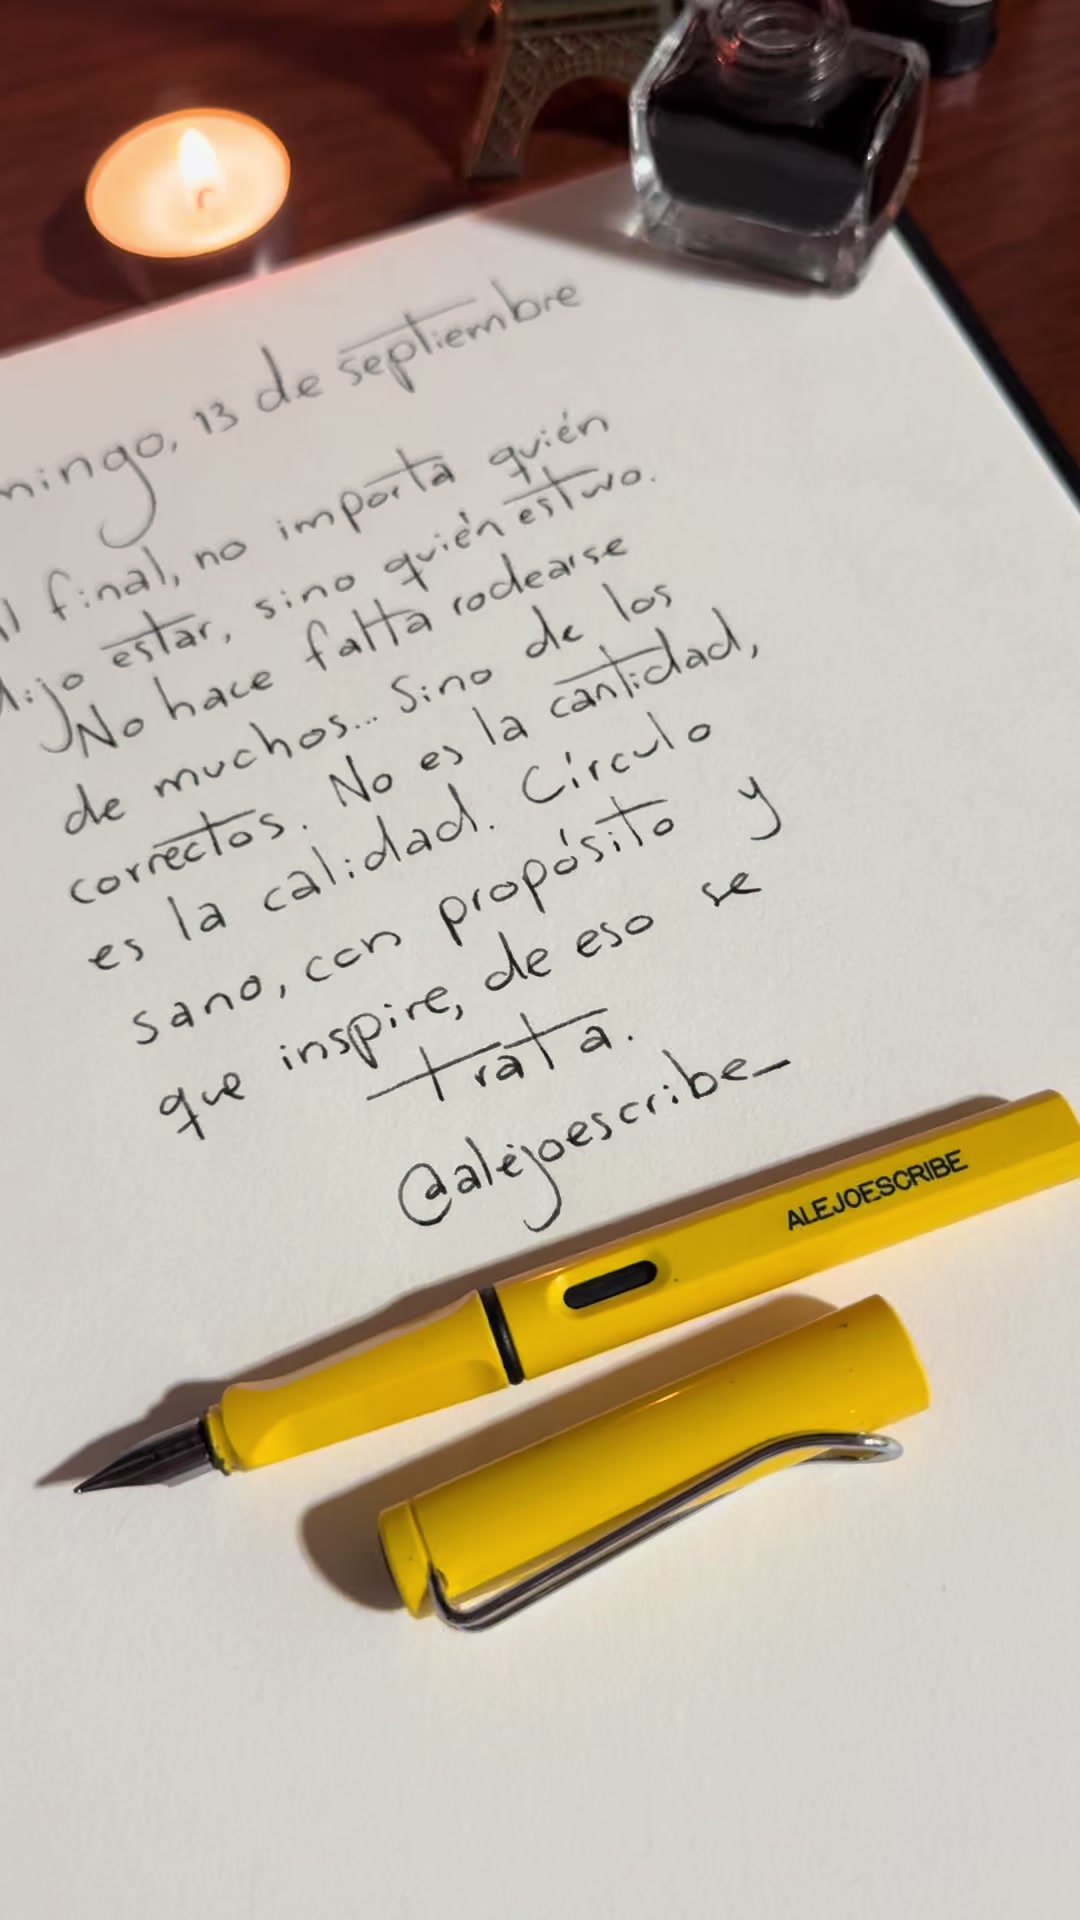 mingo, 13 de septiembre
Al final, no importa quién
dijo estar, sino quién estuvo.
No hace falta rodearse
de muchos... Sino de los
correctos. No es la cantidad,
es la calidad. Círculo
sano, con propósito y
que inspire, de eso se
trata.
@alejoescribe_
ALEJOESCRIBE